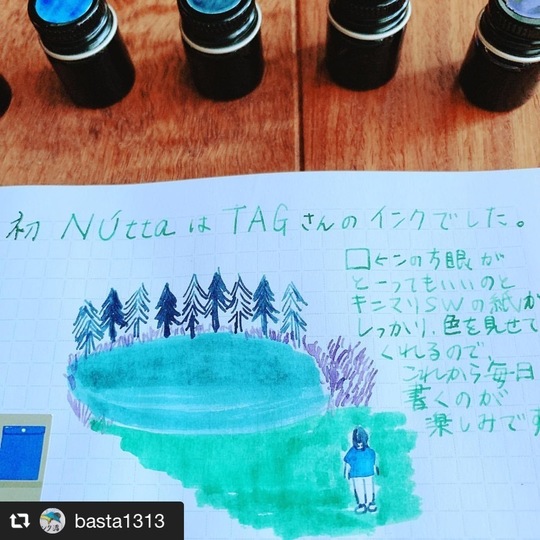 初 NÚttaはTAGさんのインクでした。
□←この方眼が
とーってもいいのと
キンマリSWの紙が
しっかり、色を見せて
くれるので、
これから毎日
書くのが
楽しみです
basta1313